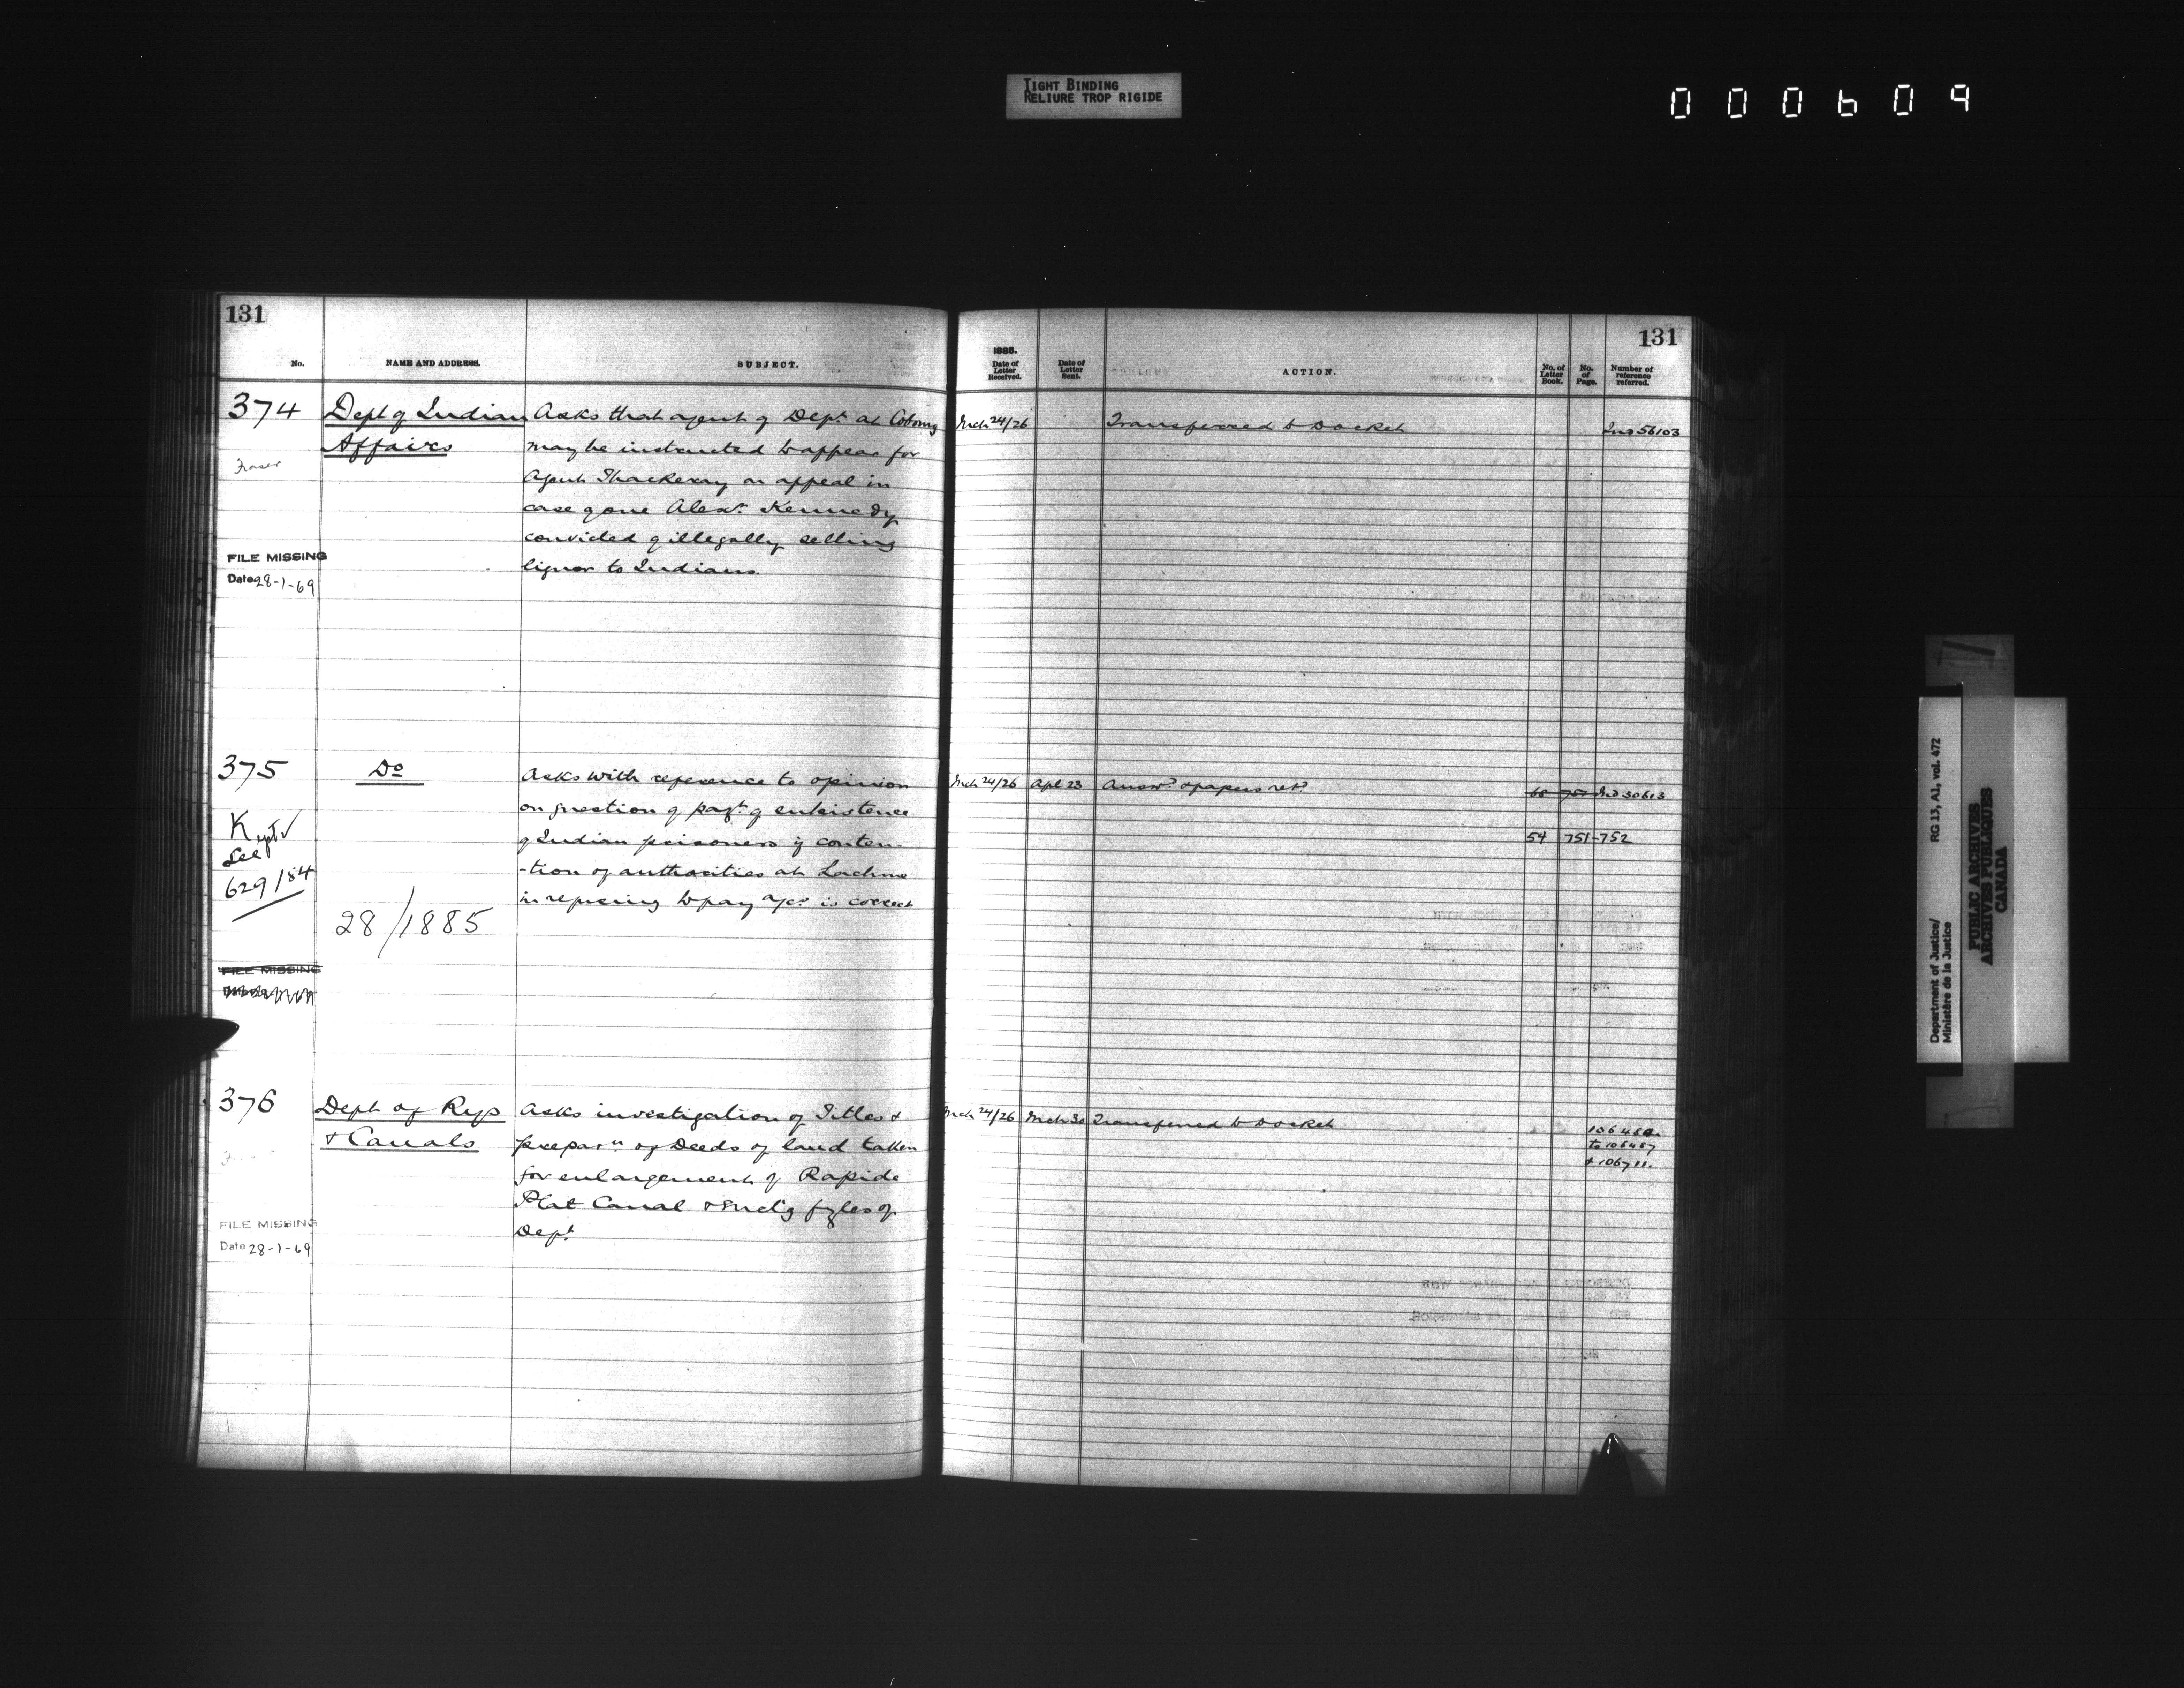 TIGHT BINDING
RELIURE TROP RIGIDE
000609
131
No.
NAME AND ADDRESS.
SUBJECT.
374
Dept of Indian
Affairs
Fraser
Asks that agent of Dept at Cobourg
may be instructed to appear for
Agent Thackeray on appeal in
case of one Alexr Kennedy
convicted of illegally selling
liquor to Indians.
FILE MISSING
Date 28-1-69
375
Do
Asks with reference to opinion
on question of payt of subsistence
of Indian prisoners if conten-
-tion of authorities at Lachine
in refusing to pay a/cs is correct
See
629/84
28/1885
FILE MISSING
376
Dept of Rys
& Canals
Asks investigation of Titles &
preparn of Deeds of land taken
for enlargement of Rapide
Plat Canal & Encl'g fyles of
Dept
FILE MISSING
Date 28-1-69
131
1885.
Date of Letter Received.
Date of Letter Sent.
ACTION.
No. of Letter Book.
No. of Page.
Number of reference referred.
Mch 24/26
Transferred to Docket
Ind 56103
Mch 24/26 Apl 23 Answd & papers retd
68 751 Ind 30613
54 751-752
Mch 24/26 Mch 30 Transferred to Docket
to 106467
& 106711.
Department of Justice/
Ministère de la Justice
RG 13, A1, vol. 472
PUBLIC ARCHIVES
ARCHIVES PUBLIQUES
CANADA